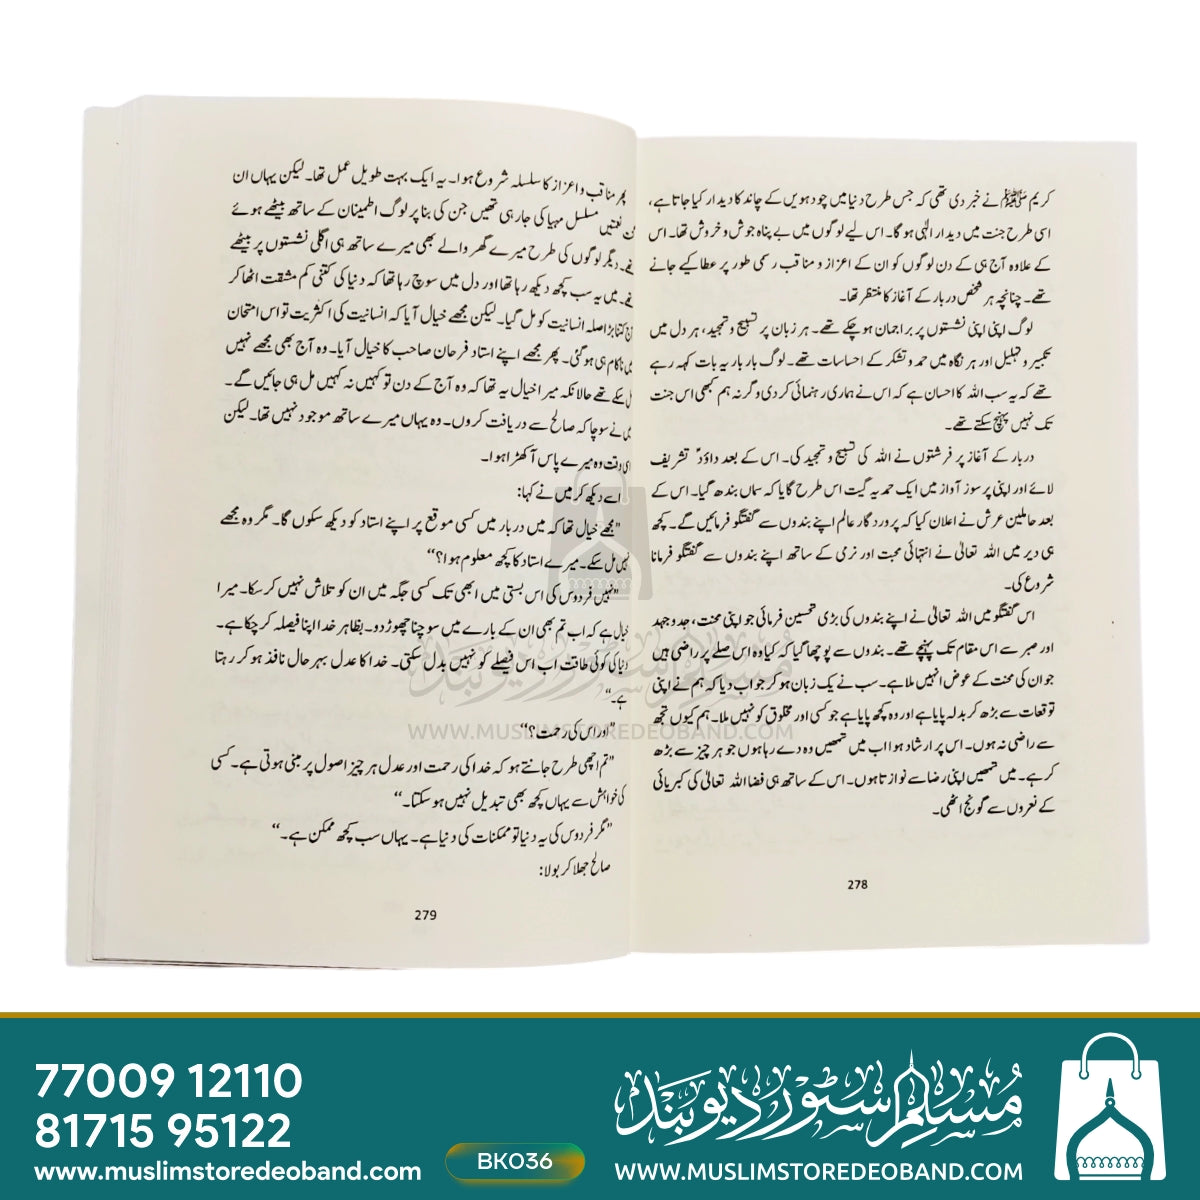 کریم ﷺ نے خبر دی تھی کہ جس طرح دنیا میں چودھویں کے چاند کا دیدار کیا جاتا ہے،
اسی طرح جنت میں دیدار الٰہی ہو گا۔ اس لیے لوگوں میں بے پناہ جوش و خروش تھا۔ اس
کے علاوہ آج ہی کے دن لوگوں کو ان کے اعزاز و مناقب رسمی طور پر عطا کیے جانے
تھے۔ چنانچہ ہر شخص دربار کے آغاز کا منتظر تھا۔
لوگ اپنی اپنی نشستوں پر براجمان ہو چکے تھے۔ ہر زبان پر تسبیح و تمجید، ہر دل میں
تکبیر و تہلیل اور ہر نگاہ میں حمد و تشکر کے احساسات تھے۔ لوگ بار بار یہ بات کہہ رہے
تھے کہ یہ سب اللہ کا احسان ہے کہ اس نے ہماری رہنمائی کر دی وگرنہ ہم کبھی اس جنت
تک نہیں پہنچ سکتے تھے۔
دربار کے آغاز پر فرشتوں نے اللہ کی تسبیح و تمجید کی۔ اس کے بعد داؤدؑ تشریف
لائے اور اپنی پرسوز آواز میں ایک حمدیہ گیت اس طرح گایا کہ سماں بندھ گیا۔ اس کے
بعد حاملین عرش نے اعلان کیا کہ پروردگار عالم اپنے بندوں سے گفتگو فرمائیں گے۔ کچھ
ہی دیر میں اللہ تعالیٰ نے انتہائی محبت اور نرمی کے ساتھ اپنے بندوں سے گفتگو فرمانا
شروع کی۔
اس گفتگو میں اللہ تعالیٰ نے اپنے بندوں کی بڑی تحسین فرمائی جو اپنی محنت، جدوجہد
اور صبر سے اس مقام تک پہنچے تھے۔ بندوں سے پوچھا گیا کہ کیا وہ اس صلے پر راضی ہیں
جو ان کی محنت کے عوض انہیں ملا ہے۔ سب نے یک زبان ہو کر جواب دیا کہ ہم نے اپنی
توقعات سے بڑھ کر بدلہ پایا ہے اور وہ کچھ پایا ہے جو کسی اور مخلوق کو نہیں ملا۔ ہم کیوں تجھ
سے راضی نہ ہوں۔ اس پر ارشاد ہوا اب میں تمھیں وہ دے رہا ہوں جو ہر چیز سے بڑھ
کر ہے۔ میں تمھیں اپنی رضا سے نوازتا ہوں۔ اس کے ساتھ ہی فضا اللہ تعالیٰ کی کبریائی
کے نعروں سے گونج اٹھی۔
278
پھر مناقب و اعزاز کا سلسلہ شروع ہوا۔ یہ ایک بہت طویل عمل تھا۔ لیکن یہاں ان
نعمتیں مسلسل مہیا کی جا رہی تھیں جن کی بنا پر لوگ اطمینان کے ساتھ بیٹھے ہوئے
دیگر لوگوں کی طرح میرے گھر والے بھی میرے ساتھ ہی اگلی نشستوں پر بیٹھے
میں یہ سب کچھ دیکھ رہا تھا اور دل میں سوچ رہا تھا کہ دنیا کی کتنی کم مشقت اٹھا کر
کتنا بڑا صلہ انسانیت کو مل گیا۔ لیکن مجھے خیال آیا کہ انسانیت کی اکثریت تو اس امتحان
ناکام ہی ہو گئی۔ پھر مجھے اپنے استاد فرحان صاحب کا خیال آیا۔ وہ آج بھی مجھے نہیں
سکے تھے حالانکہ میرا خیال یہ تھا کہ وہ آج کے دن تو کہیں نہ کہیں مل ہی جائیں گے۔
نے سوچا کہ صالح سے دریافت کروں۔ وہ یہاں میرے ساتھ موجود نہیں تھا۔ لیکن
وقت وہ میرے پاس آ کھڑا ہوا۔
اسے دیکھ کر میں نے کہا:
”مجھے خیال تھا کہ میں دربار میں کسی موقع پر اپنے استاد کو دیکھ سکوں گا۔ مگر وہ مجھے
نہیں مل سکے۔ میرے استاد کا کچھ معلوم ہوا؟“
”نہیں فردوس کی اس بستی میں ابھی تک کسی جگہ میں ان کو تلاش نہیں کر سکا۔ میرا
خیال ہے کہ اب تم بھی ان کے بارے میں سوچنا چھوڑ دو۔ بظاہر خدا اپنا فیصلہ کر چکا ہے۔
دنیا کی کوئی طاقت اب اس فیصلے کو نہیں بدل سکتی۔ خدا کا عدل بہرحال نافذ ہو کر رہتا
ہے۔“
”اور اس کی رحمت؟“
”تم اچھی طرح جانتے ہو کہ خدا کی رحمت اور عدل ہر چیز اصول پر مبنی ہوتی ہے۔ کسی
کی خواہش سے یہاں کچھ بھی تبدیل نہیں ہو سکتا۔“
”مگر فردوس کی یہ دنیا تو ممکنات کی دنیا ہے۔ یہاں سب کچھ ممکن ہے۔“
صالح جھلا کر بولا:
279
مسلم سٹور دیوبند
WWW.MUSLIMSTOREDEOBAND.COM
77009 12110
81715 95122
www.muslimstoredeoband.com
BK036
مسلم سٹور دیوبند
WWW.MUSLIMSTOREDEOBAND.COM